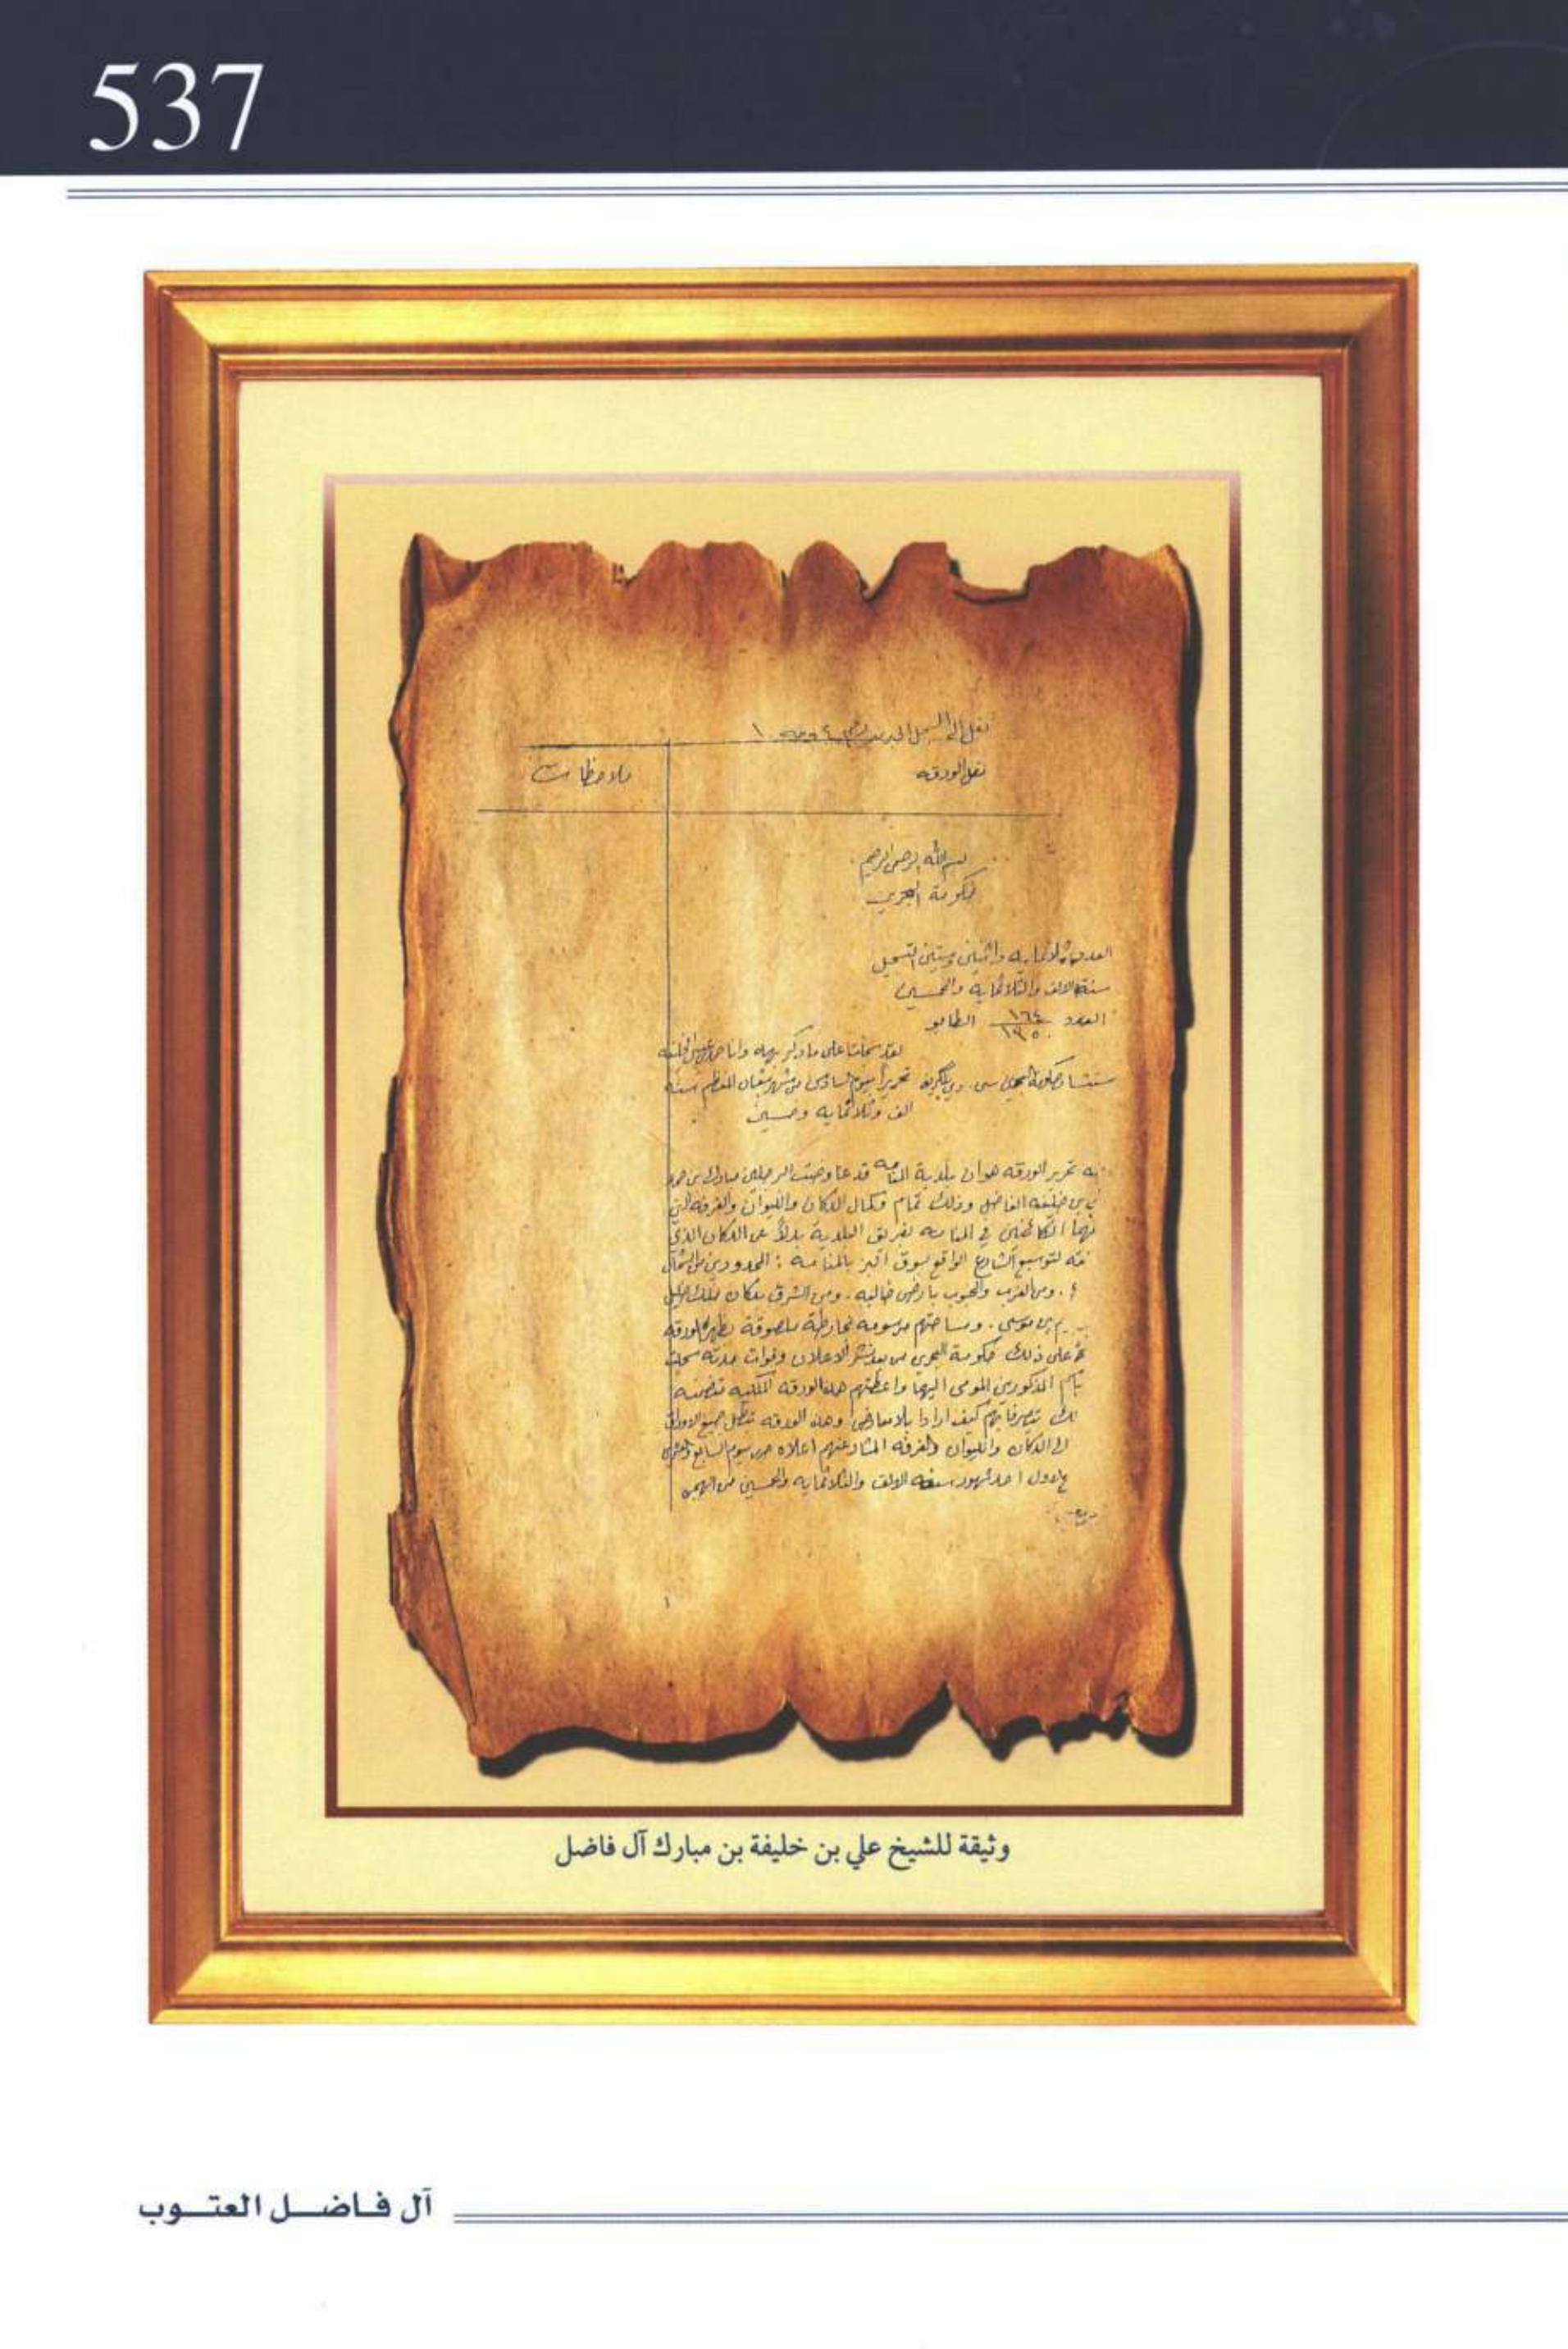 537
نقل الى السجل الجديد رقم ٤
نقل الورقه
ملاحظات
بسم الله الرحمن الرحيم
حكومة البحرين
العدد ثلاثمايه واثنين وستين التسجيل
سنة الالف والثلاثماية والخمسين
العدد ١٦٤ / ١٣٥٠ الطابو
لقد سجلنا على ما ذكر به وانا حمد بن عيسى الخليفه
مستشار حكومة البحرين سي. دي بلكريف تحريرا بيوم السادس من شهر شعبان المعظم سنه
الف وثلاثمايه وخمسين
به تحرير الورقه هو ان بلدية المنامه قد عاوضت الرجلين مبارك بن حمد
بن خليفه الفاضل وذلك تمام وكمال الدكان والليوان والغرفه التي
الكائنين في المنامه لفريق البلدية بدلاً عن الدكان الذي
لتوسيع الشارع الواقع بسوق بالمنامه : المحدودين من الشمال
ومن الغرب والجنوب بارض خاليه. ومن الشرق بدكان ملك
بن موسى. ومساحتهم مرسومه بخارطة ملصوقة بظهر الورقه
على ذلك حكومة البحرين من بعد نشر الاعلان وفوات مدته سجلت
باسم المذكورين المومى اليهما واعطتهم هذه الورقه الملكيه
كيف ارادا بلا معارض وهذه الورقه تبطل جميع الاوراق
الدكان والليوان والغرفه المشار عنهم اعلاه من يوم السابع
الاول احد شهور سنة الالف والثلاثمايه والخمسين من الهجره
وثيقة للشيخ علي بن خليفة بن مبارك آل فاضل
آل فاضل العتوب